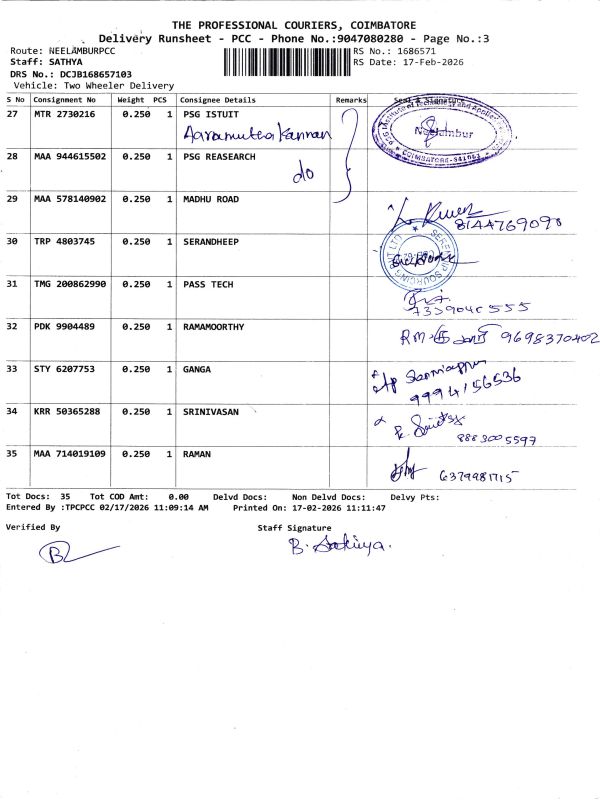 THE PROFESSIONAL COURIERS, COIMBATORE
Delivery Runsheet - PCC - Phone No.:9047080280 - Page No.:3
Route: NEELAMBURPCC RS No.: 1686571
Staff: SATHYA RS Date: 17-Feb-2026
DRS No.: DCJB168657103
Vehicle: Two Wheeler Delivery
S No Consignment No Weight PCS Consignee Details Remarks Seal & Signature
27 MTR 2730216 0.250 1 PSG ISTUIT
Neelambur
COIMBATORE-641062
28 MAA 944615502 0.250 1 PSG REASEARCH
do
29 MAA 578140902 0.250 1 MADHU ROAD
8144769090
30 TRP 4803745 0.250 1 SERANDHEEP
31 TMG 200862990 0.250 1 PASS TECH
32 PDK 9904489 0.250 1 RAMAMOORTHY
9698370402
33 STY 6207753 0.250 1 GANGA
9994156536
34 KRR 50365288 0.250 1 SRINIVASAN
8883005597
35 MAA 714019109 0.250 1 RAMAN
Tot Docs: 35 Tot COD Amt: 0.00 Delvd Docs: Non Delvd Docs: Delvy Pts:
Entered By :TPCPCC 02/17/2026 11:09:14 AM Printed On: 17-02-2026 11:11:47
Verified By Staff Signature
B. Sathiya.